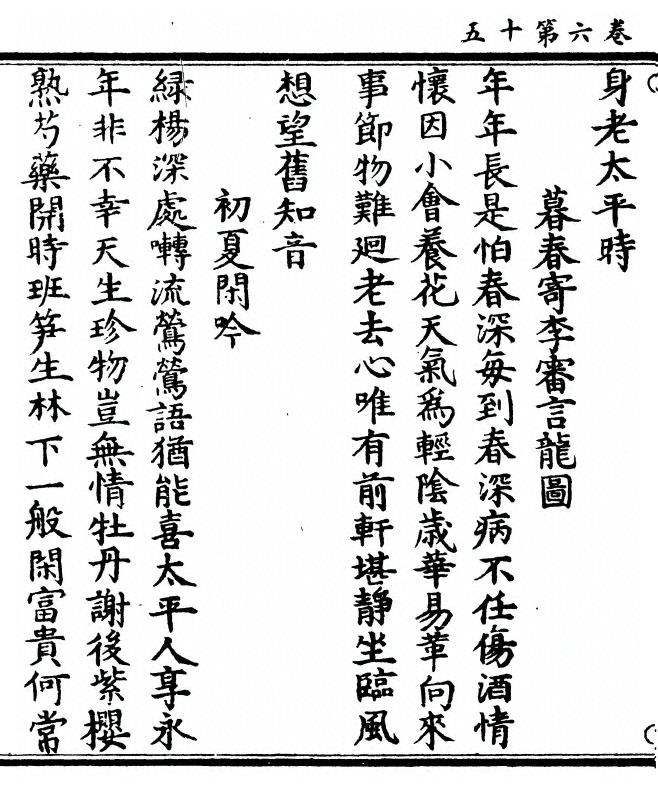 卷六第十五
身老太平時
暮春寄李審言龍圖
年年長是怕春深每到春深病不任傷酒情
懷因小會養花天氣爲輕陰歲華易革向來
事節物難廻老去心唯有前軒堪靜坐臨風
想望舊知音
初夏閑吟
綠楊深處囀流鶯鶯語猶能喜太平人享永
年非不幸天生珍物豈無情牡丹謝後紫櫻
熟芍藥開時班笋生林下一般閑富貴何常